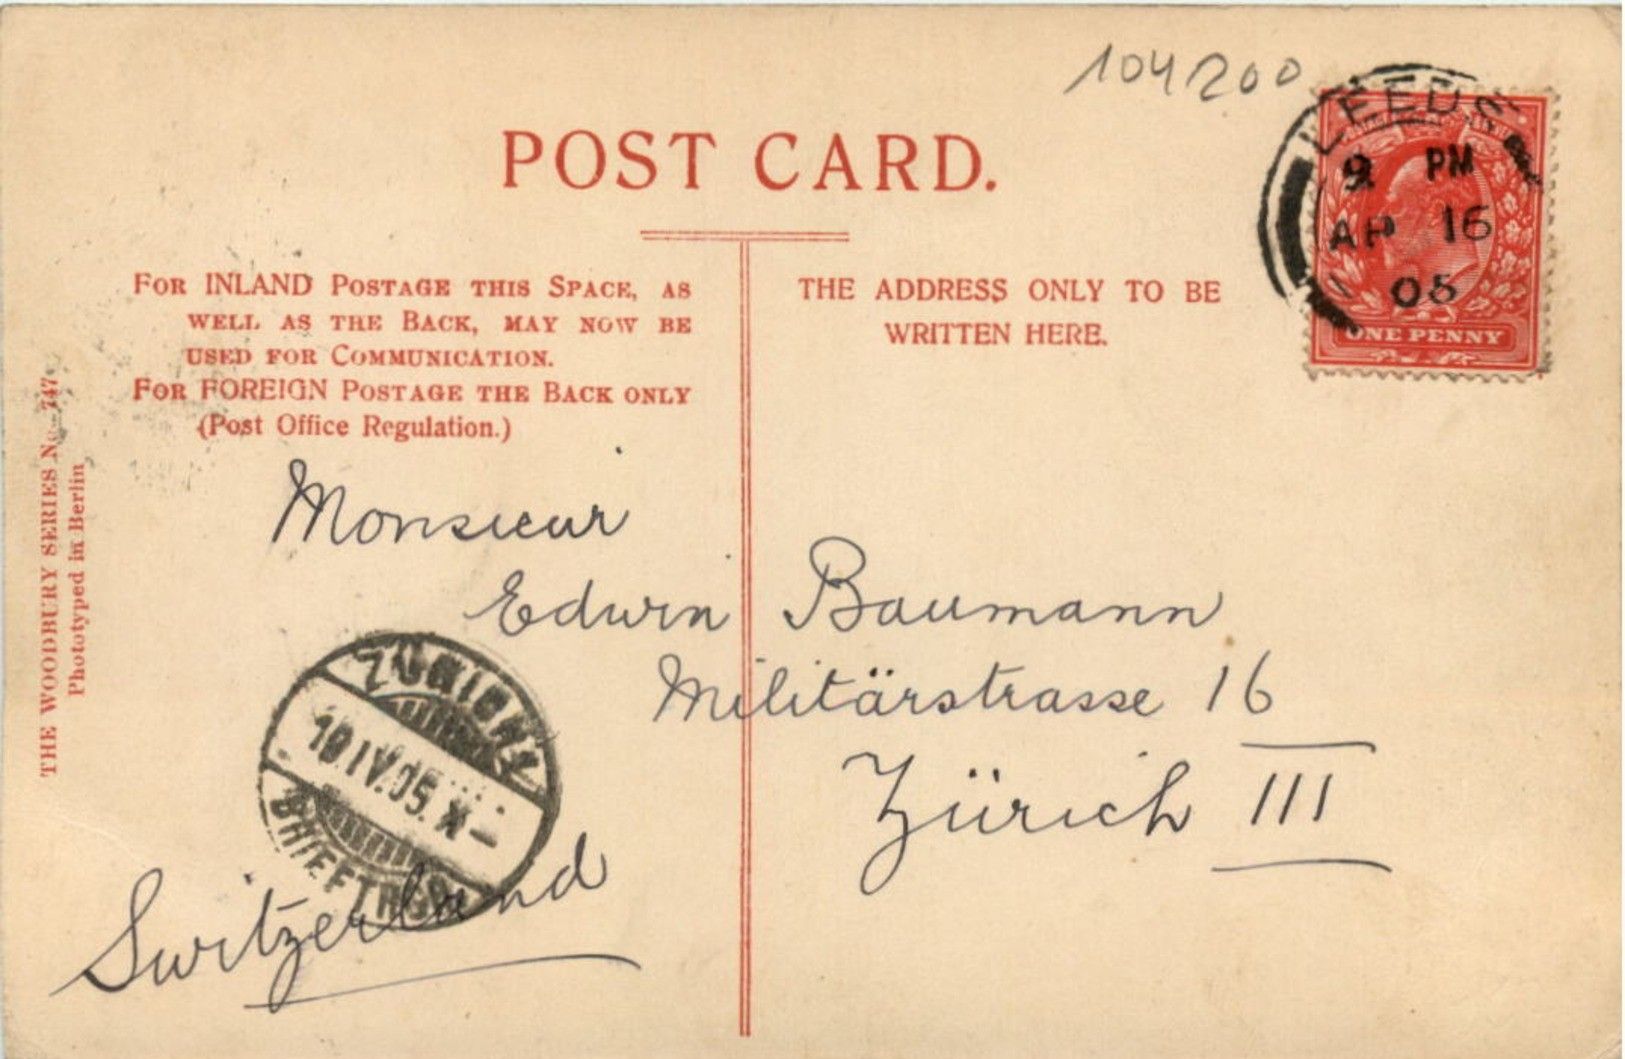 104200
POST CARD.
LEEDS
9 PM
AP 16
05
ONE PENNY
FOR INLAND POSTAGE THIS SPACE, AS
WELL AS THE BACK, MAY NOW BE
USED FOR COMMUNICATION.
FOR FOREIGN POSTAGE THE BACK ONLY
(Post Office Regulation.)
THE ADDRESS ONLY TO BE
WRITTEN HERE.
THE WOODBURY SERIES No. 747
Phototyped in Berlin
Monsieur
Edwin Baumann
Militärstrasse 16
Zürich III
Switzerland
ZÜRICH 1
19.IV.05. X–
BRIEFTRÄGER